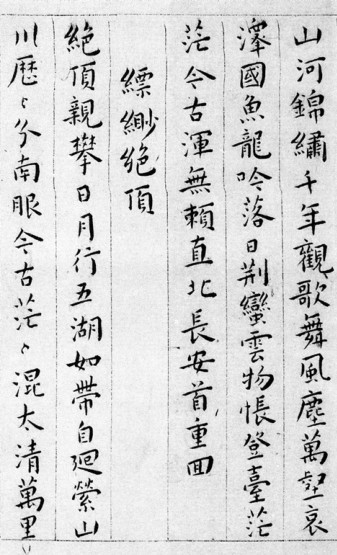 山河錦繡千年觀歌舞風塵萬壑哀
澤國魚龍吟落日荆蠻雲物悵登臺茫
茫今古渾無賴直北長安首重回
縹緲絕頂
絕頂親攀日月行五湖如帶自迴縈山
川歷〻分南眼今古茫〻混太清萬里